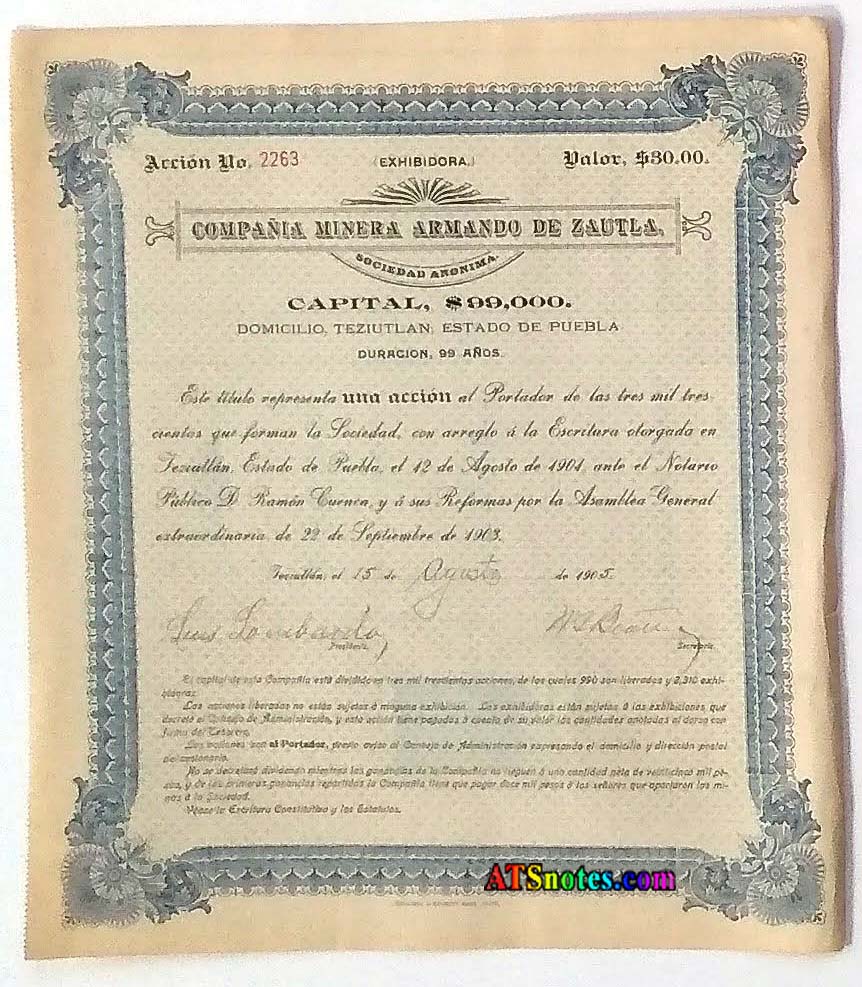 Acción No. 2263 (EXHIBIDORA.) Valor, $30.00.
COMPAÑIA MINERA ARMANDO DE ZAUTLA.
SOCIEDAD ANONIMA.
CAPITAL, $99,000.
DOMICILIO, TEZIUTLAN, ESTADO DE PUEBLA
DURACION, 99 AÑOS.
Este título representa una acción al Portador de las tres mil tres-
cientas que forman la Sociedad, con arreglo á la Escritura otorgada en
Teziutlán, Estado de Puebla, el 12 de Agosto de 1901, ante el Notario
Público D. Ramón Cuenca, y á sus Reformas por la Asamblea General
extraordinaria de 22 de Septiembre de 1903.
Teziutlán, el 15 de Agosto de 1905.
Luis Lombardo
Presidente. Secretario.
El capital de esta Compañía está dividido en tres mil trescientas acciones, de las cuales 990 son liberadas y 2,310 exhi-
bidoras.
Las acciones liberadas no están sujetas á ninguna exhibición. Las exhibidoras están sujetas á las exhibiciones que
decrete el Consejo de Administración, y esta acción tiene pagadas á cuenta de su valor las cantidades anotadas al dorso con
firma del Tesorero.
Las acciones son al Portador, previo aviso al Consejo de Administración expresando el domicilio y dirección postal
del accionario.
No se decretará dividendo mientras las ganancias de la Compañía no lleguen á una cantidad neta de veinticinco mil pe-
sos, y de las primeras ganancias repartidas la Compañía tiene que pagar doce mil pesos á los señores que aportaron las mi-
nas á la Sociedad.
Véase la Escritura Constitutiva y los Estatutos.
ATSnotes.com